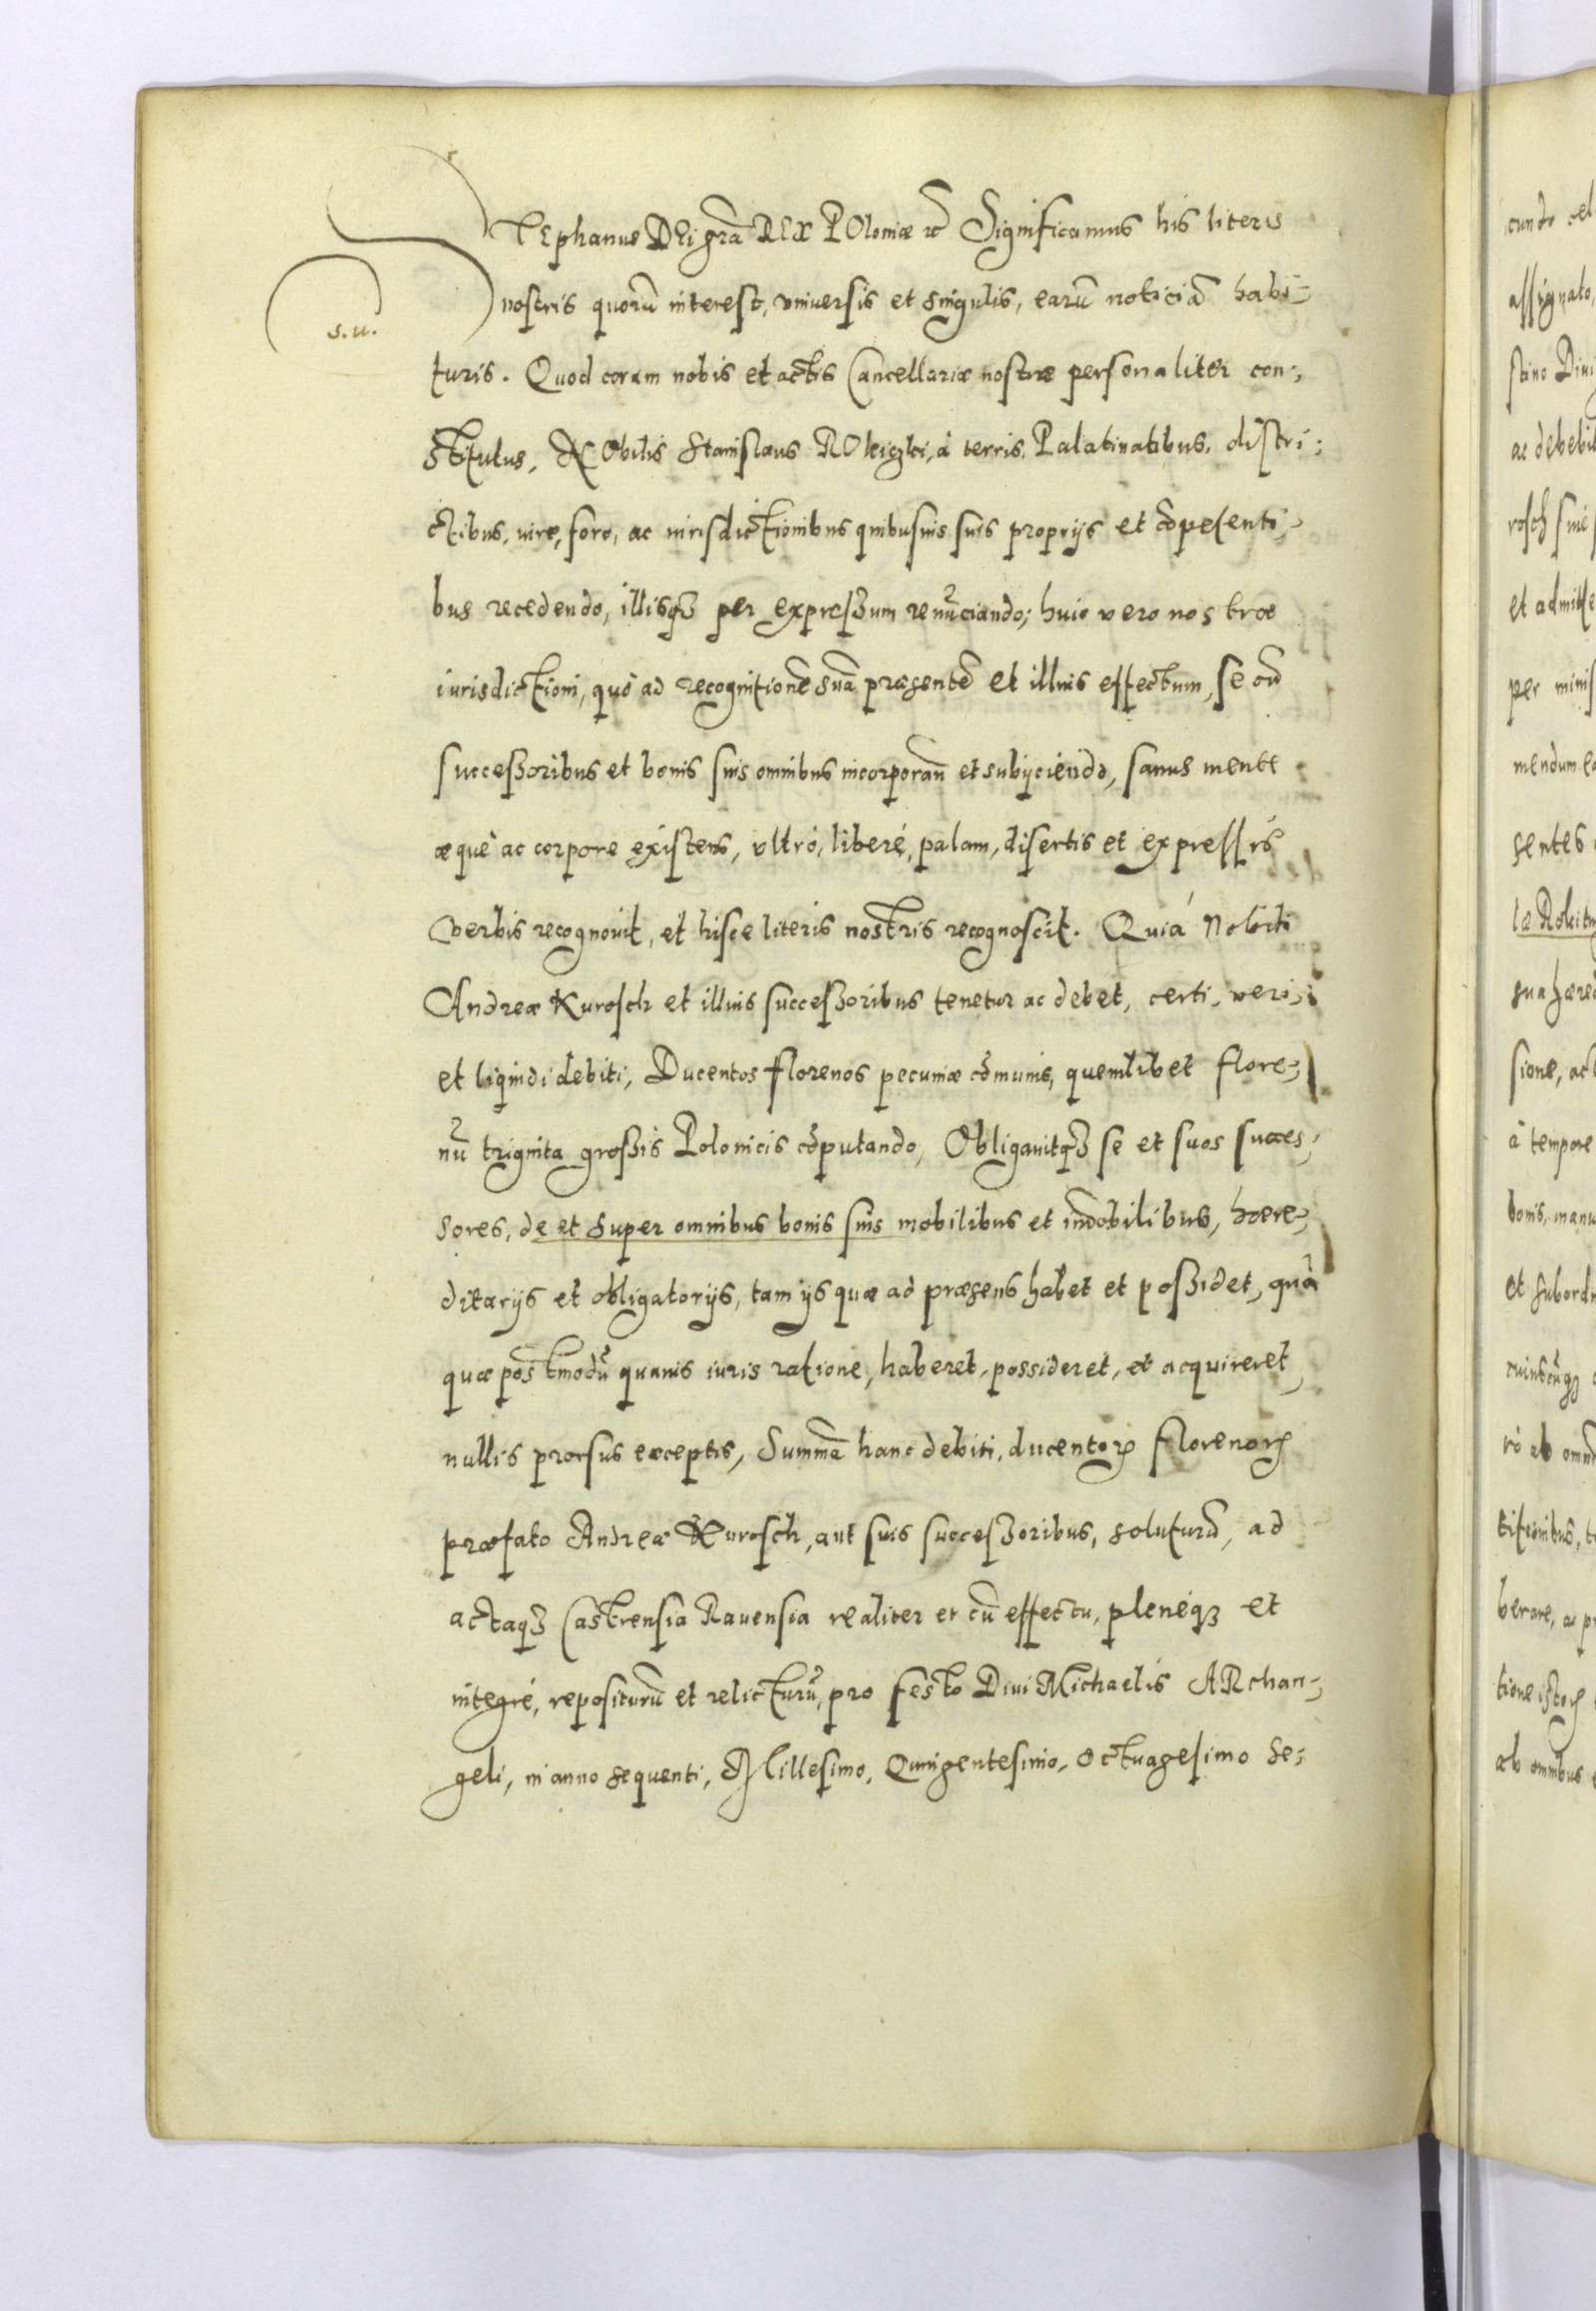 STEphanus DEi grã REX POloniæ etc Significamus his literis
nostris quorũ interest, vniversis et singulis, earũ noticiã habi-
s.u.
turis. Quod coram nobis et actis Cancellariæ nostræ personaliter con-
stitutus, NObilis Stanislaus ROkiczki, à terris, Palatinatibus, distri-
ctibus, iure, foro, ac iurisdictionibus quibusuis suis proprijs et cõpetenti-
bus recedendo, illisq3 per expressum renũciando; huic vero nostræ
iurisdictioni, quò ad recognitionẽ suã præsentẽ et illius effectum, se cũ
successoribus et bonis suis omnibus incorporan et subijciendo, sanus mente
æquè ac corpore existens, vltró, liberé, palam, disertis et expressis
verbis recognouit, et hisce literis nostris recognoscit. Quiá Nobili
Andreæ Kurosch et illius successoribus tenetur ac debet, certi, veri,
et liquidi debiti, Ducentos florenos pecuniæ cõmunis, quemlibet flore-
nũ triginta grossis Polonicis cõputando, Obligauitq3 se et suos succes-
sores, de et super omnibus bonis suis mobilibus et im̃obilibus, hære-
ditarijs et obligatorijs, tam ijs quæ ad præsens habet et possidet, quã
quæ postmodũ quauis iuris ratione, haberet, possideret, et acquireret,
nullis prorsus exceptis, Summã hanc debiti, ducentorꝝ florenorꝝ
præfato Andreæ Kurosch, aut suis successoribus, soluturũ, ad
actaq3 Castrensia Rauensia realiter et cũ effectu, pleneq3 et
integré, repositurũ et relicturũ, pro festo Diui Michaelis ARchan-
geli, in anno sequenti, Millesimo, Quingentesimo, Octuagesimo se-